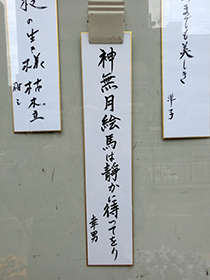 までも美しき
洋子
神無月絵馬は静かに待ってをり
幸男
の生き様枯木立